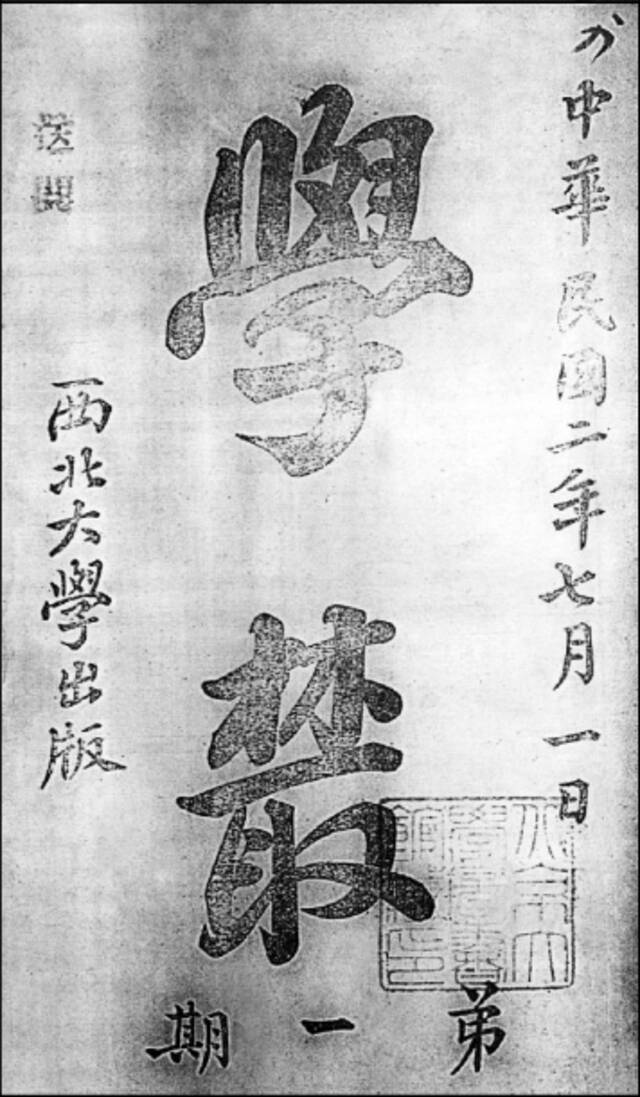 中華民国二年七月一日
學叢
弟一期
西北大學出版